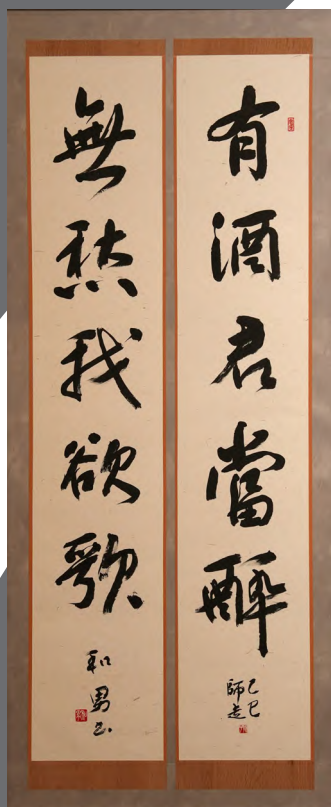 有酒君當醉
己巳
師走
無愁我欲歌
和男書